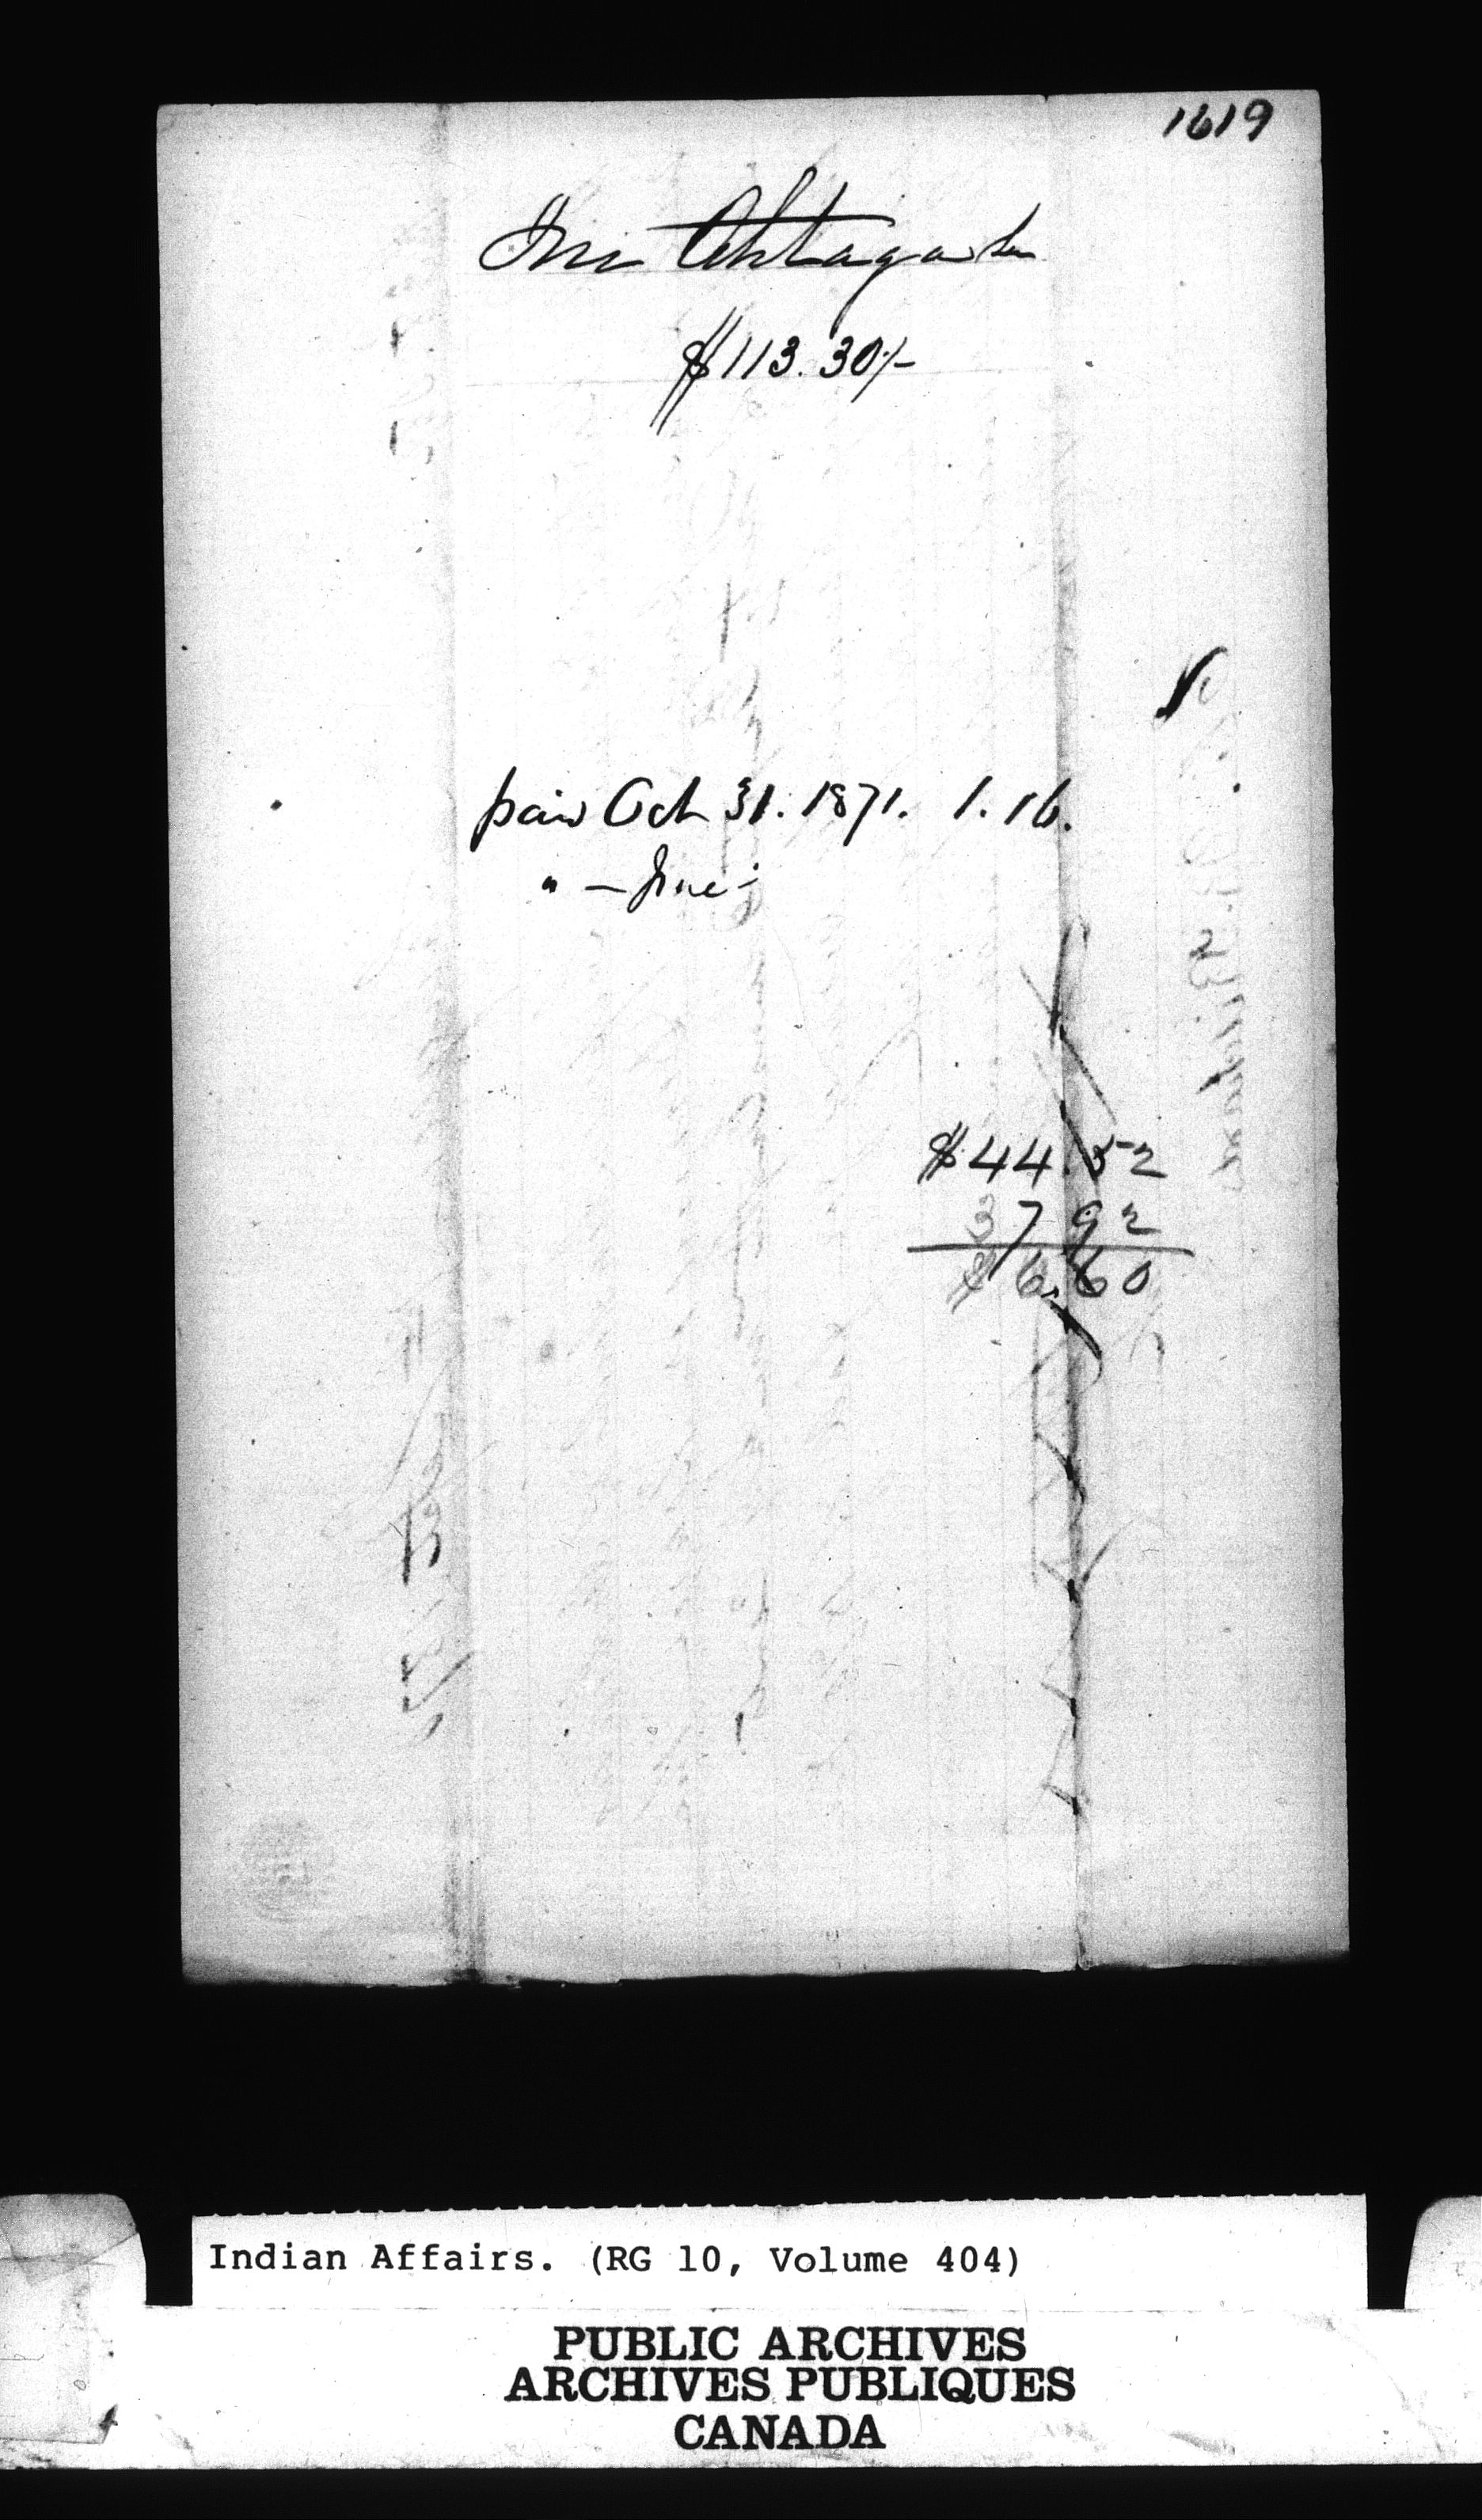 1619
$113.30/-
paid Oct 31. 1871. 1.16.
" —
$44.52
37 92
$6.60
Indian Affairs. (RG 10, Volume 404)
PUBLIC ARCHIVES
ARCHIVES PUBLIQUES
CANADA